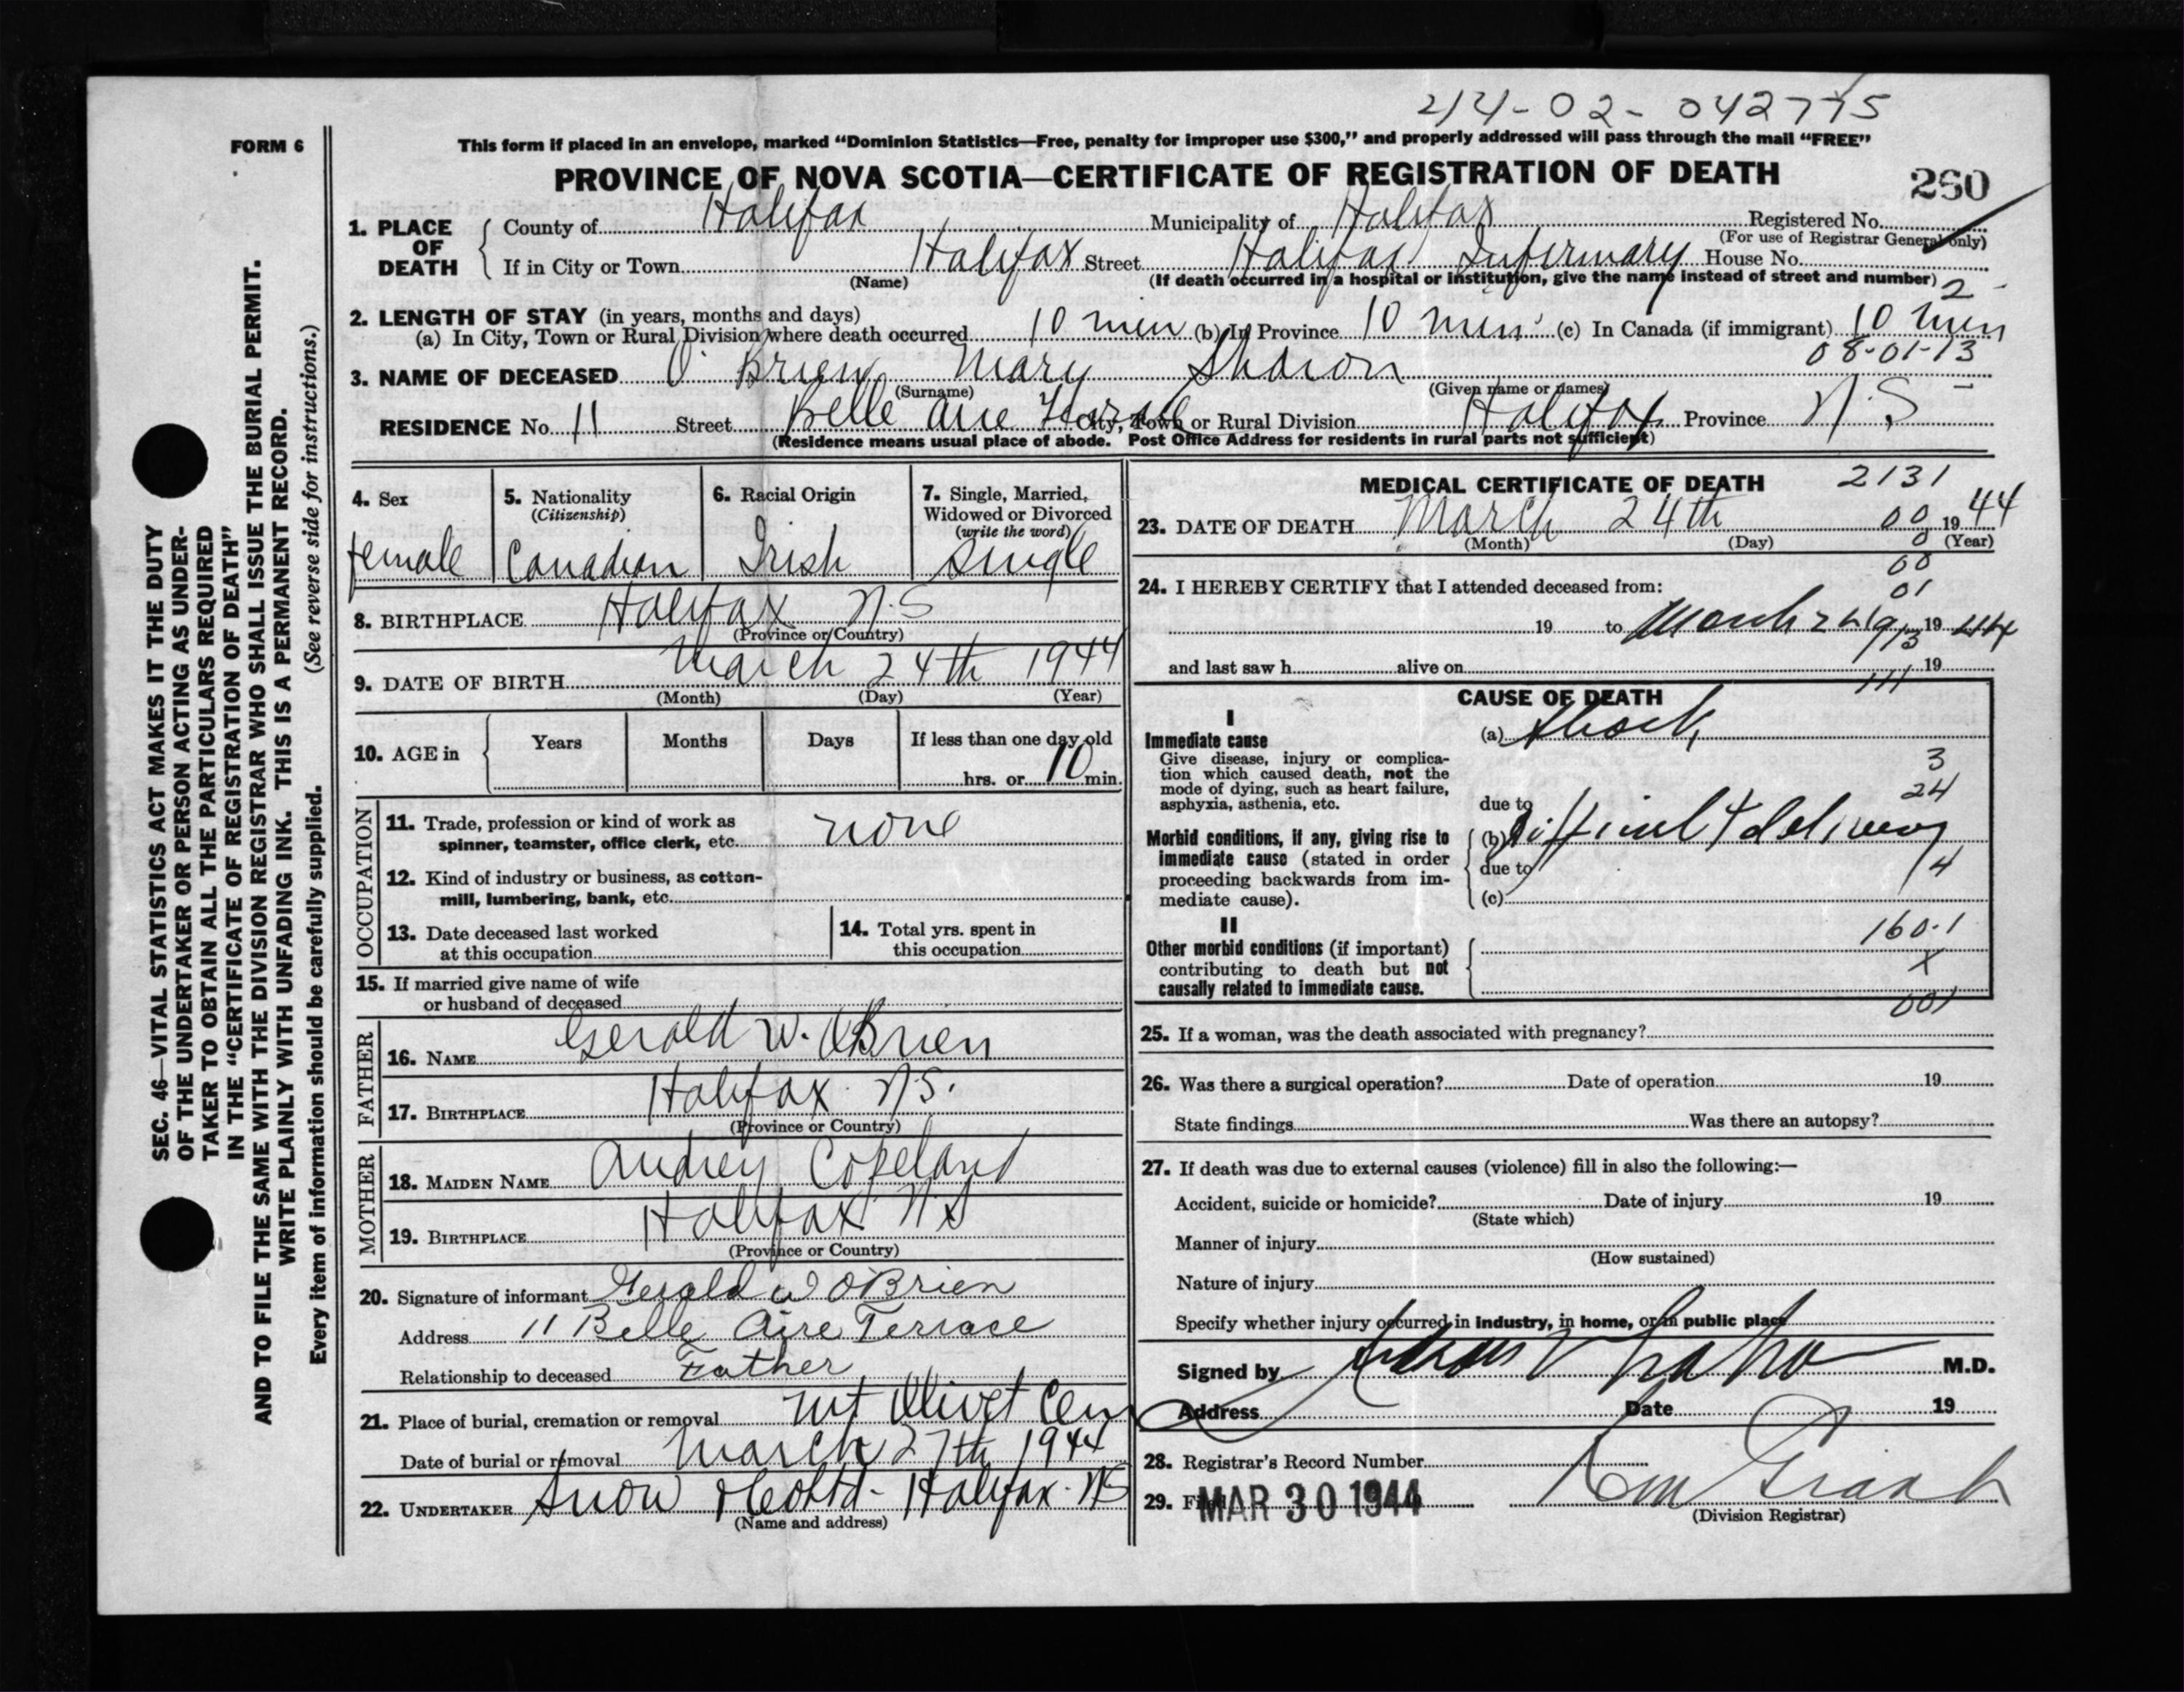 44-02-042775
FORM 6
This form if placed in an envelope, marked "Dominion Statistics—Free, penalty for improper use $300," and properly addressed will pass through the mail "FREE"
PROVINCE OF NOVA SCOTIA—CERTIFICATE OF REGISTRATION OF DEATH
260
1. PLACE OF DEATH
County of Halifax Municipality of Halifax Registered No.
(For use of Registrar General only)
If in City or Town Halifax Street Halifax Infirmary House No.
(Name) (If death occurred in a hospital or institution, give the name instead of street and number)
2
2. LENGTH OF STAY (in years, months and days)
(a) In City, Town or Rural Division where death occurred 10 min (b) In Province 10 min (c) In Canada (if immigrant) 10 min
08-01-13
3. NAME OF DECEASED O'Brien Mary Sharon
(Surname) (Given name or names)
RESIDENCE No. 11 Street Belle Aire City, Town or Rural Division Halifax Province N.S
(Residence means usual place of abode. Post Office Address for residents in rural parts not sufficient)
4. Sex
female
5. Nationality
(Citizenship)
Canadian
6. Racial Origin
Irish
7. Single, Married, Widowed or Divorced
(write the word)
Single
8. BIRTHPLACE Halifax N.S
(Province or Country)
9. DATE OF BIRTH March 24th 1944
(Month) (Day) (Year)
10. AGE in Years Months Days If less than one day old
hrs. or 10 min.
OCCUPATION
11. Trade, profession or kind of work as
spinner, teamster, office clerk, etc. none
12. Kind of industry or business, as cotton-
mill, lumbering, bank, etc.
13. Date deceased last worked
at this occupation
14. Total yrs. spent in
this occupation
15. If married give name of wife
or husband of deceased
FATHER
16. NAME Gerald W. O'Brien
17. BIRTHPLACE Halifax N.S.
(Province or Country)
MOTHER
18. MAIDEN NAME Audrey Copeland
19. BIRTHPLACE Halifax N.S
(Province or Country)
20. Signature of informant Gerald W O'Brien
Address 11 Belle Aire Terrace
Relationship to deceased Father
21. Place of burial, cremation or removal Mt Olivet Cem
Date of burial or removal March 27th 1944
22. UNDERTAKER Snow & Co Ltd - Halifax. NS
(Name and address)
MEDICAL CERTIFICATE OF DEATH
2131
23. DATE OF DEATH March 24th 00 1944
(Month) (Day) 0 (Year)
00
24. I HEREBY CERTIFY that I attended deceased from:
01
19 to March 24 19 44
and last saw h alive on 19
111
CAUSE OF DEATH
I
Immediate cause
Give disease, injury or complica-
tion which caused death, not the
mode of dying, such as heart failure,
asphyxia, asthenia, etc.
(a) Shock
3
24
due to
Morbid conditions, if any, giving rise to
immediate cause (stated in order
proceeding backwards from im-
mediate cause).
(b) Difficult delivery
due to
14
(c)
II
Other morbid conditions (if important)
contributing to death but not
causally related to immediate cause.
160.1
X
001
25. If a woman, was the death associated with pregnancy?
26. Was there a surgical operation? Date of operation 19
State findings Was there an autopsy?
27. If death was due to external causes (violence) fill in also the following:—
Accident, suicide or homicide? Date of injury 19
(State which)
Manner of injury
(How sustained)
Nature of injury
Specify whether injury occurred in industry, in home, or in public place
Signed by M.D.
Address Date 19
28. Registrar's Record Number
29. Filed MAR 30 1944
(Division Registrar)
SEC. 46—VITAL STATISTICS ACT MAKES IT THE DUTY
OF THE UNDERTAKER OR PERSON ACTING AS UNDER-
TAKER TO OBTAIN ALL THE PARTICULARS REQUIRED
IN THE "CERTIFICATE OF REGISTRATION OF DEATH"
AND TO FILE THE SAME WITH THE DIVISION REGISTRAR WHO SHALL ISSUE THE BURIAL PERMIT.
WRITE PLAINLY WITH UNFADING INK. THIS IS A PERMANENT RECORD.
Every item of information should be carefully supplied. (See reverse side for instructions.)